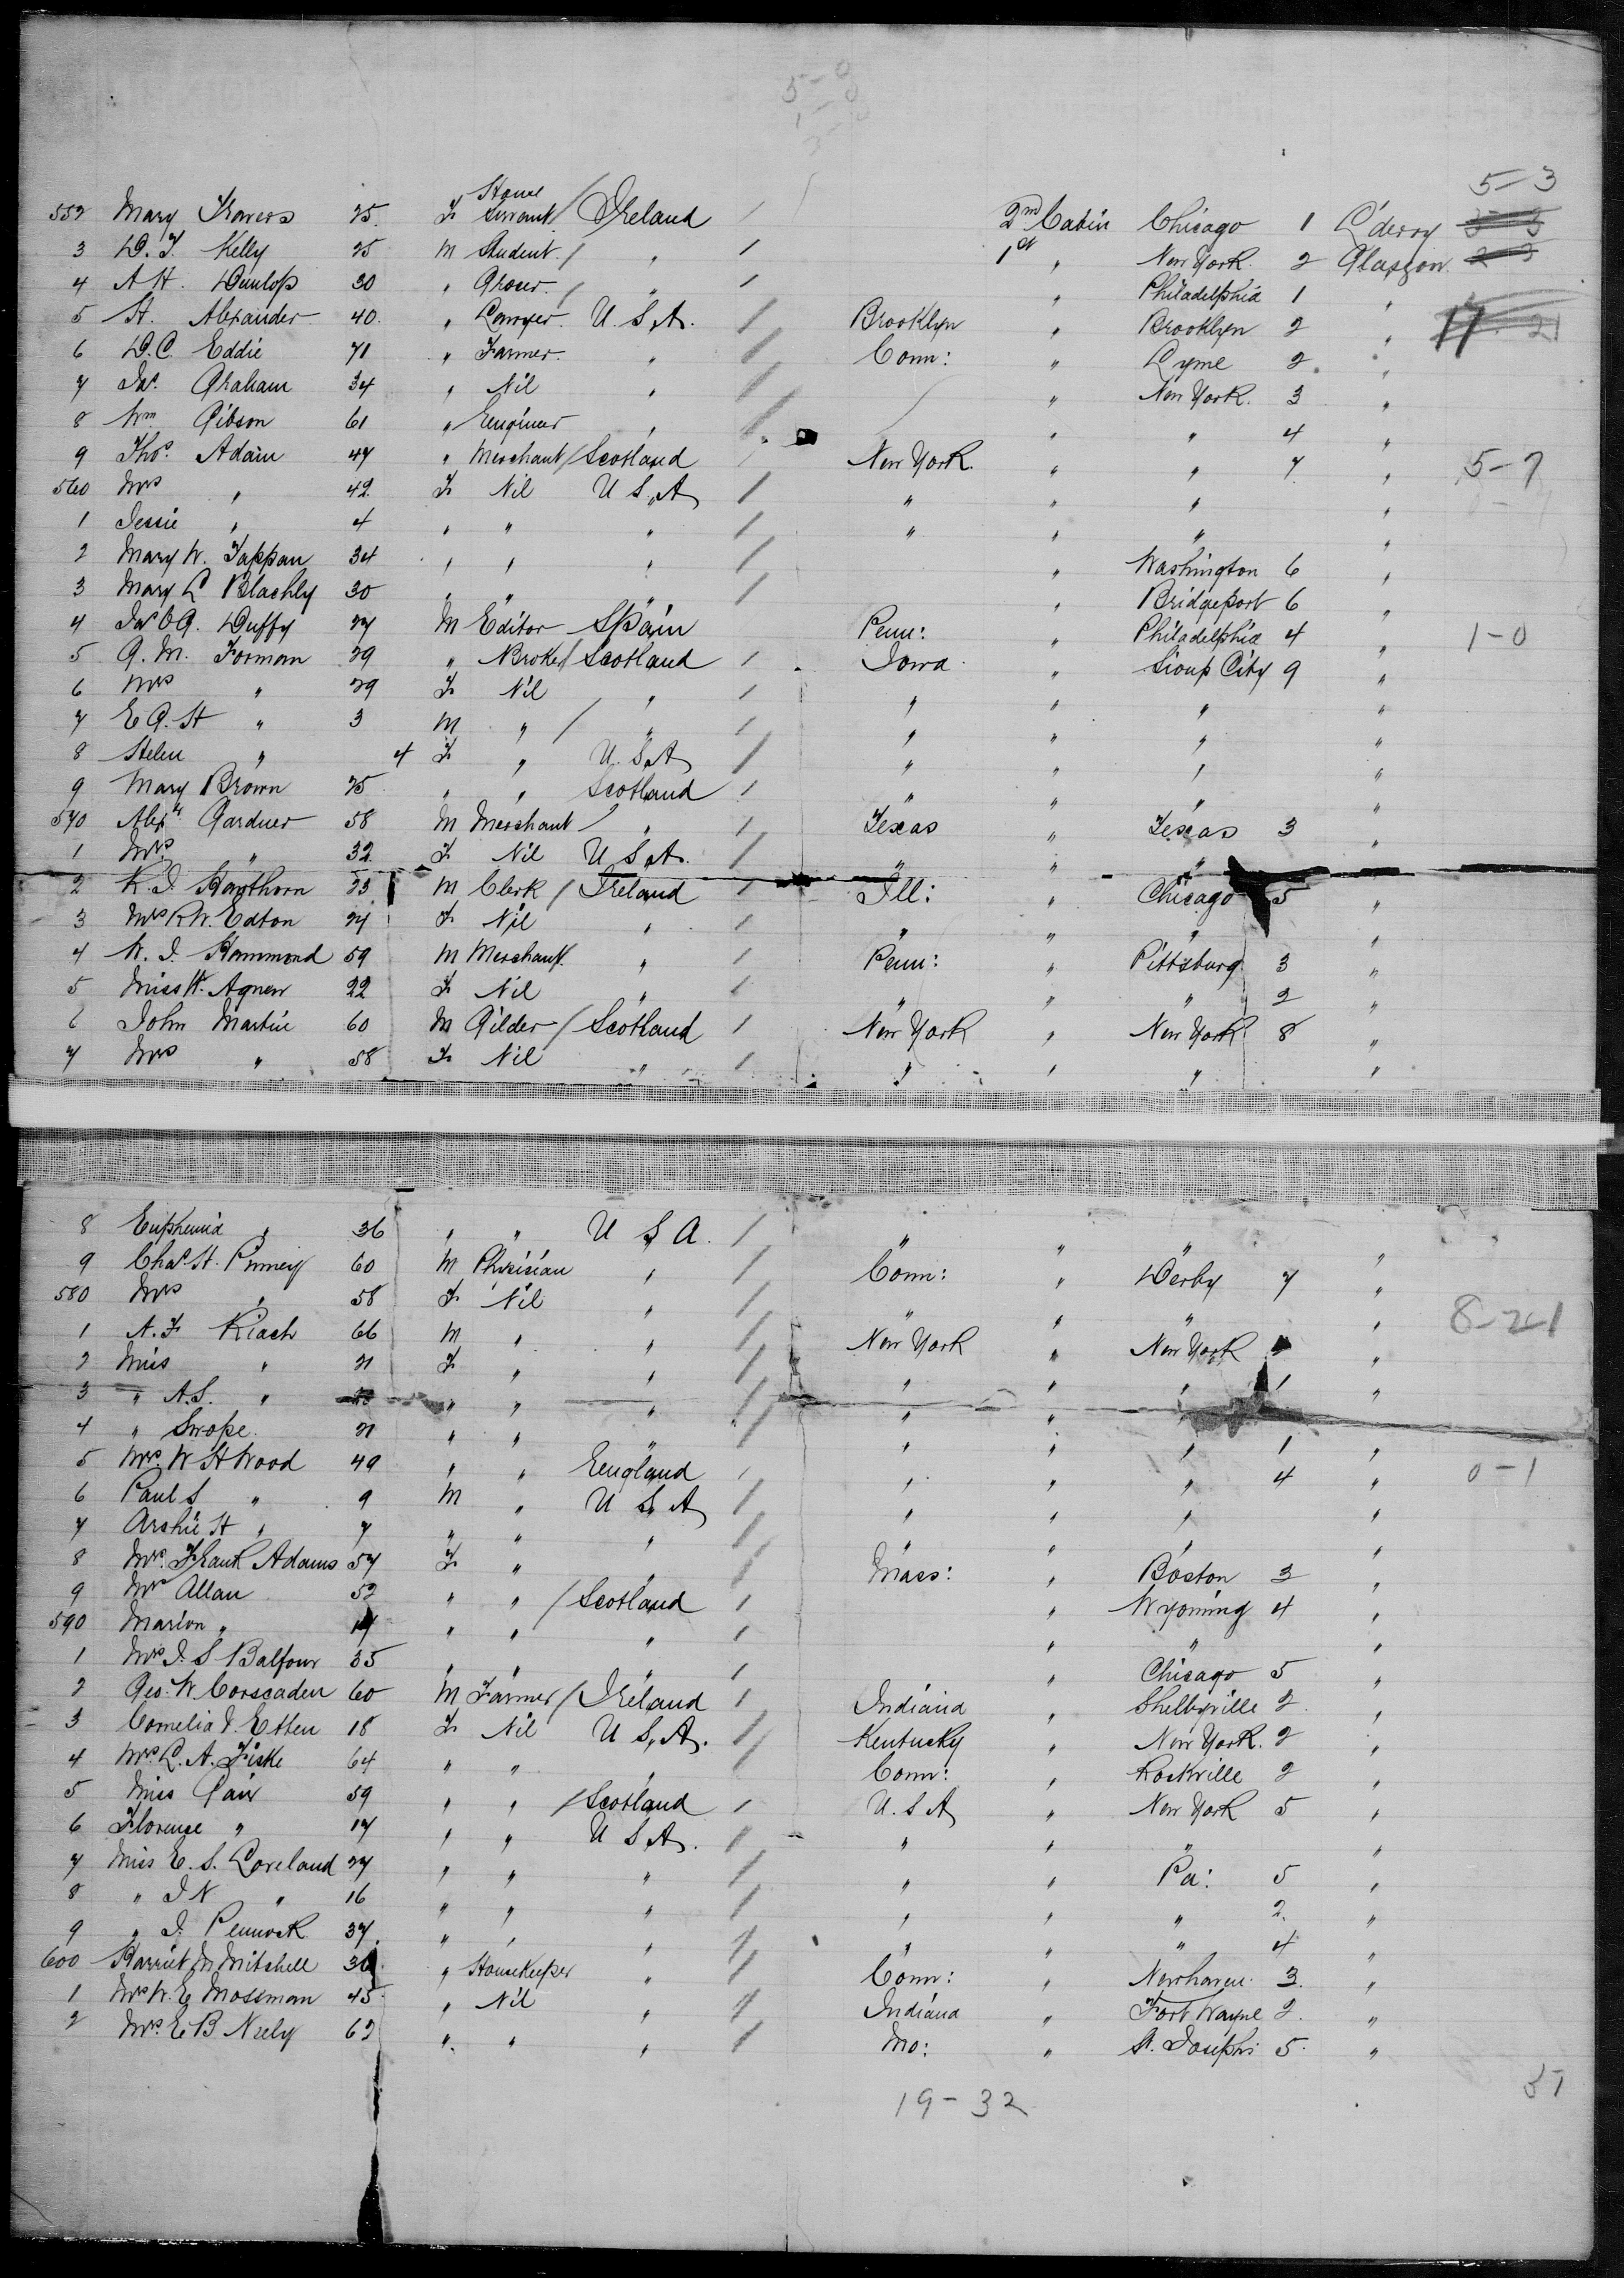 5-0
1-0
5-3
552 Mary Travers 25 F House Servant / Ireland / 2nd Cabin Chicago 1 L'derry 3-3
3 D. J. Kelly 25 M Student / " / 1st " New York 2 Glasgow 2-3
4 A H. Dunlop 30 " Grocer / " / " Philadelphia 1 "
5 H. Alexander 40 " Lawyer U.S.A. / Brooklyn " Brooklyn 2 " 21
6 D. C. Eddie 71 " Farmer " / Conn: " Lyme 2 "
7 Jas. Graham 34 " Nil " / " New York 3 "
8 Wm Gibson 61 " Engineer " / " " 4 "
9 Thos. Adam 47 " Merchant / Scotland / New York " " 7 " 5-7
560 Mrs " 42 F Nil U S A / " " " "
1 Jessie " 4 " " " / " " " "
2 Mary W. Tappan 34 " " " / " Washington 6 "
3 Mary L Blachly 30 " " " / " Bridgeport 6 "
4 Jas O G. Duffy 27 M Editor Spain Penn: " Philadelphia 4 " 1-0
5 G. M. Forman 29 " Broker / Scotland / Iowa " Sioux City 9 "
6 Mrs " 29 F Nil " / " " " "
7 E G. H " 3 M " / " / " " " "
8 Helen " 4 F " U.S.A / " " " "
9 Mary Brown 25 " " Scotland / " " " "
570 Alexr Gardner 58 M Merchant / " / Texas " Texas 3 "
1 Mrs " 32 F Nil U S A. / " " "
2 K. J. Haythorn 23 M Clerk / Ireland / Ill: " Chicago 5 "
3 Mrs R W. Edton 24 F Nil " / " " " "
4 W. J. Hammond 59 M Merchant " / Penn: " Pittsburg 3 "
5 Miss H. Agnew 22 F Nil " / " " " 2 "
6 John Martin 60 M Gilder / Scotland / New York " New York 8 "
7 Mrs " 58 F Nil " / " " " "
8 Euphemia " 36 " " U S A. / " " " "
9 Chas H. Pinney 60 M Phisician " / Conn: " Derby 7 "
580 Mrs " 58 F Nil " / " " " " 8-21
1 A. F Riach 66 M " " / New York " New York "
2 Miss " 21 F " " / " " " 1 "
3 " A.S. " " " " / " " "
4 " Swope 21 " " " / " " " 1 "
5 Mrs. W H Wood 49 " " England / " " " 4 " 0-1
6 Paul S " 9 M " U S A / " " " "
7 Archie H " 7 " " " / " " " "
8 Mrs. Frank Adams 57 F " " / Mass: " Boston 3 "
9 Mrs Allan 52 " " / Scotland / " Wyoming 4 "
590 Marion " " " " / " " "
1 Mrs J. S Balfour 35 " " " / " Chicago 5 "
2 Geo. W. Corscaden 60 M Farmer / Ireland / Indiana " Shelbyville 2 "
3 Cornelia V. Etten 18 F Nil U S, A. / Kentucky " New York 2 "
4 Mrs. L. A. Fiske 64 " " " / Conn: " Rockville 2 "
5 Miss Pair 59 " " / Scotland / U. S A " New York 5 "
6 Florence " 17 " " U S A. / " " " "
7 Miss E. S. Loveland 27 " " " / " " Pa: 5 "
8 " J N " 16 " " " / " " " 2 "
9 " J. Pennock 37 " " " / " " " 4 "
600 Harriet M Mitchell " Housekeeper " / Conn: " Newhaven 3 "
1 Mrs W. E Mossman 45 " Nil " / Indiana " Fort Wayne 2 "
2 Mrs. E B Neely 62 " " " / Mo: " St. Joseph 5 "
19-32
37